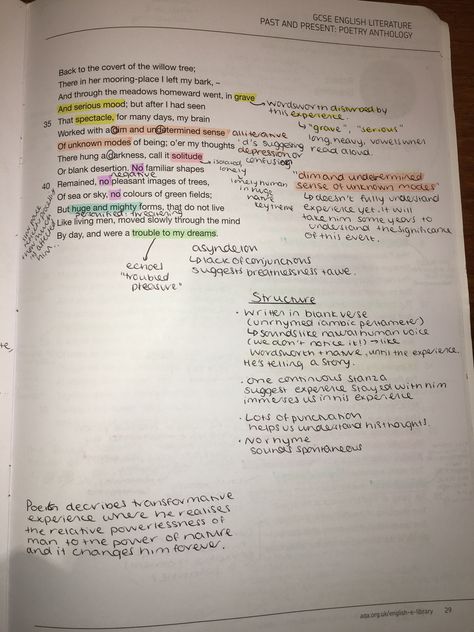 GCSE ENGLISH LITERATURE
PAST AND PRESENT: POETRY ANTHOLOGY
Back to the covert of the willow tree;
There in her mooring-place I left my bark, –
And through the meadows homeward went, in grave
And serious mood; but after I had seen
35 That spectacle, for many days, my brain
Worked with a dim and undetermined sense
Of unknown modes of being; o'er my thoughts
There hung a darkness, call it solitude
Or blank desertion. No familiar shapes
40 Remained, no pleasant images of trees,
Of sea or sky, no colours of green fields;
But huge and mighty forms, that do not live
Like living men, moved slowly through the mind
By day, and were a trouble to my dreams.
wordsworth disturbed by
this experience.
↳ "grave", "serious"
long, heavy, vowels when
read aloud.
alliterative
'd's suggesting
depression or
confusion
isolated
lonely
lonely human
in huge
nature
key theme
negative
personified: threatening
"dim and undetermined
sense of unknown modes"
↳ doesn't fully understand
experience yet. it will
take him some years to
understand the significance
of this event.
echoes
"troubled
pleasure"
asyndeton
↳ lack of conjunctions
suggest breathlessness + awe.
Structure
• written in blank verse
(unrhymed iambic pentameter)
↳ sounds like natural human voice
(we don't notice it!) → like
wordsworth + nature, until the experience.
He's telling a story.
• one continuous stanza
suggest experience stayed with him
immerses us in his experience
• Lots of punctuation
helps us understand his thoughts.
• No rhyme
sounds spontaneous
Poem decribes transformative
experience where he realises
the relative powerlessness of
man to the power of nature
and it changes him forever.
aqa.org.uk/english-e-library 29